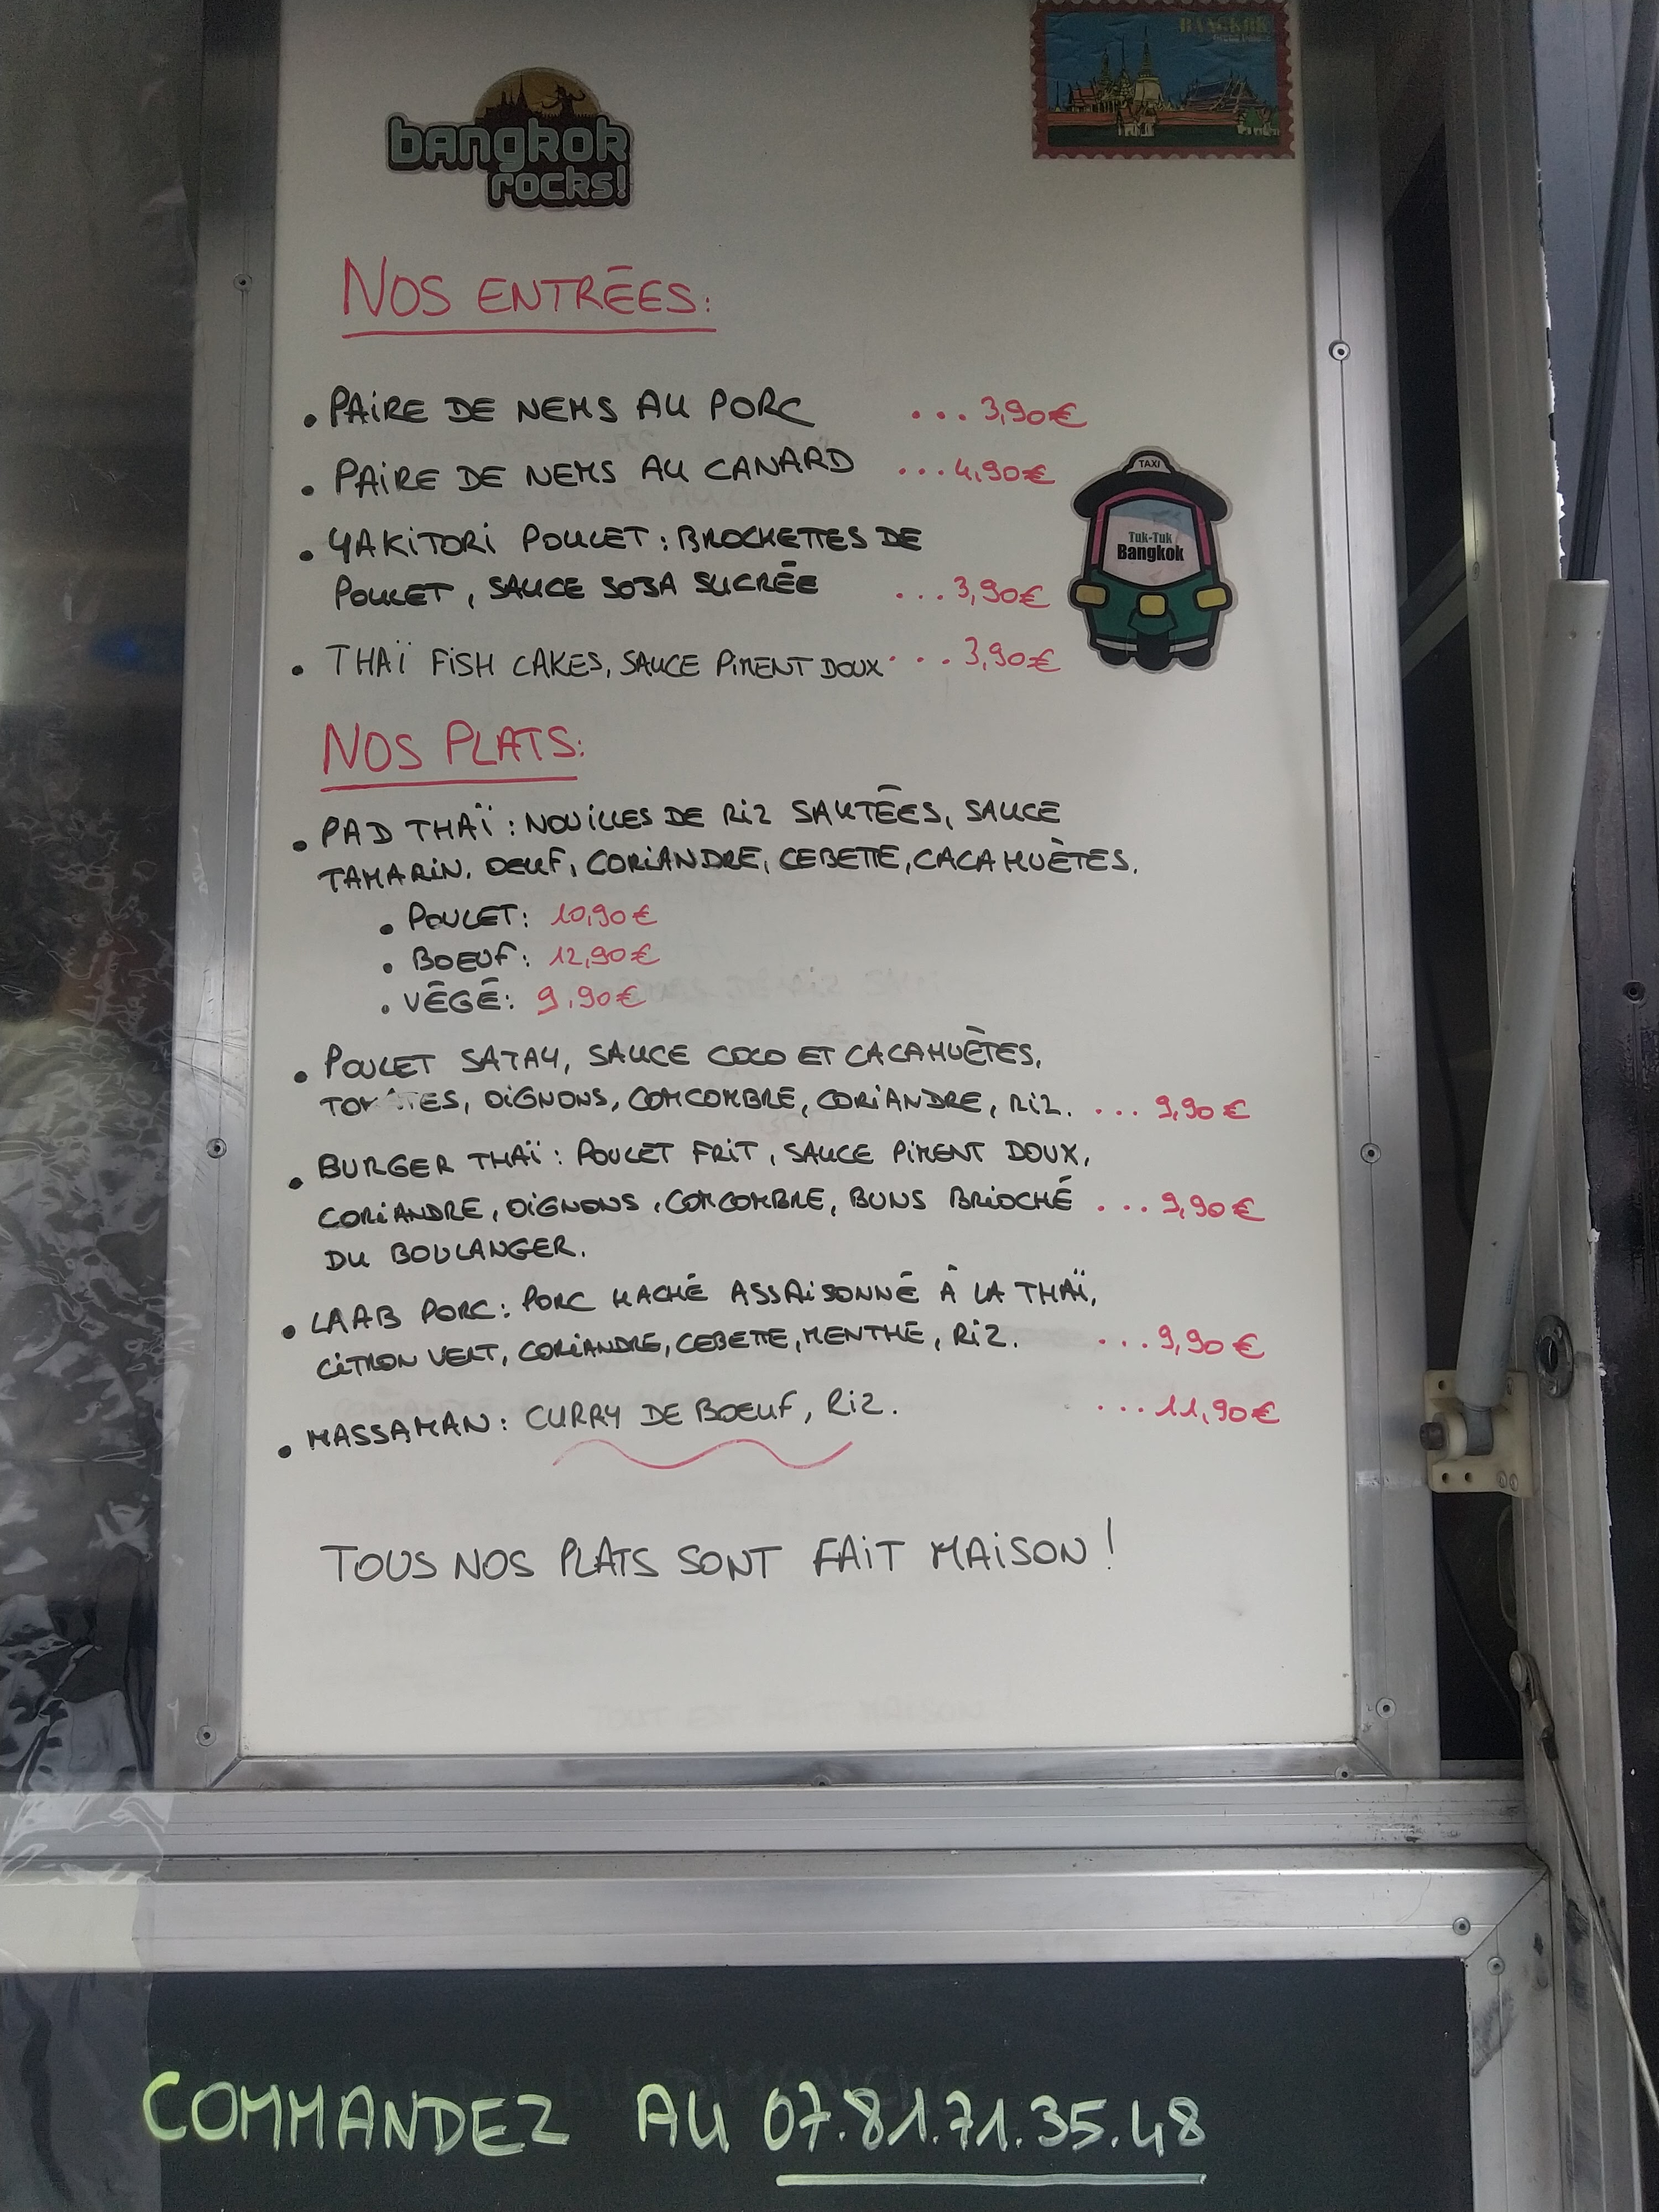 BANGKOK
bangkok
rocks!
NOS ENTRÉES:
• PAIRE DE NEMS AU PORC ... 3,90€
• PAIRE DE NEMS AU CANARD ... 4,90€
• YAKITORI POULET : BROCHETTES DE
POULET, SAUCE SOJA SUCRÉE ... 3,90€
TAXI
Tuk-Tuk
Bangkok
• THAÏ FISH CAKES, SAUCE PIMENT DOUX ... 3,90€
NOS PLATS:
• PAD THAÏ : NOUILLES DE RIZ SAUTÉES, SAUCE
TAMARIN, OEUF, CORIANDRE, CEBETTE, CACAHUÈTES.
• POULET: 10,90€
• BOEUF: 12,90€
• VÉGÉ: 9,90€
• POULET SATAY, SAUCE COCO ET CACAHUÈTES,
TOMATES, OIGNONS, CONCOMBRE, CORIANDRE, RIZ. ... 9,90€
• BURGER THAÏ : POULET FRIT, SAUCE PIMENT DOUX,
CORIANDRE, OIGNONS, CONCOMBRE, BUNS BRIOCHÉ ... 9,90€
DU BOULANGER.
• LAAB PORC: PORC HACHÉ ASSAISONNÉ À LA THAÏ,
CITRON VERT, CORIANDRE, CEBETTE, MENTHE, RIZ. ... 9,90€
• MASSAMAN: CURRY DE BOEUF, RIZ. ... 11,90€
TOUS NOS PLATS SONT FAIT MAISON !
COMMANDEZ AU 07.81.71.35.48